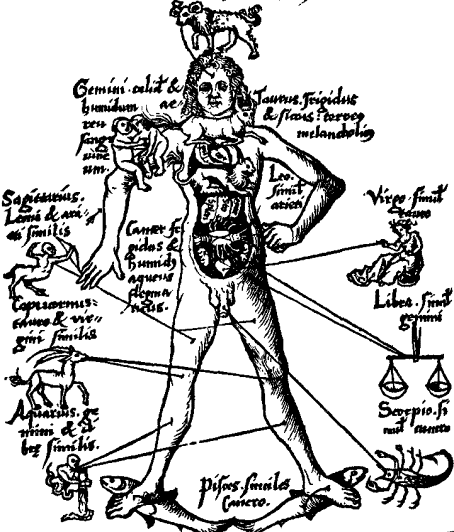 Gemini. calid' &
humidum ae-
reu
sang
uine
um.
Taurus. frigidus
& siccus: terreq
melancholiq
Leo.
simil'
arieti
Sagittarius.
Leoni & ari-
eti similis
Cancer fr
igidus &
humidq
aqueus
flegma
ticus.
Virgo. simil'
tauro
Capricornus:
tauro & vir-
gini similis
Libra. simil'
gemini
Aquarius. ge
mini & li-
brę similis.
Scorpio. si
mil' cancro
Pisces. similes
Cancro.